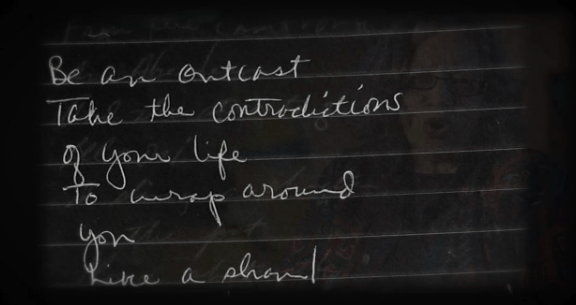 Be an outcast
Take the contradictions
of your life
To wrap around
you
Like a shawl